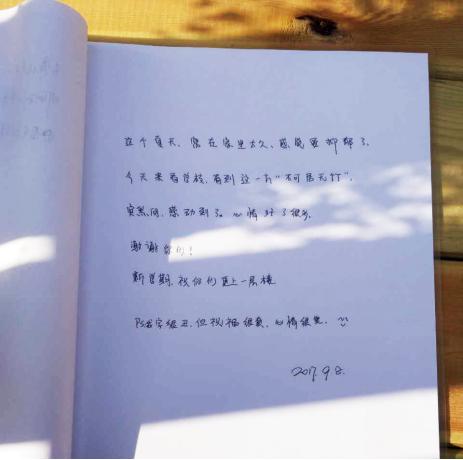 这个夏天，窝在家里太久，感觉要抑郁了。
今天来看学校，看到这一方“不可居无竹”。
突然间，感动到了。心情好了很多。
谢谢你们！
新学期，祝你们更上一层楼
字很丑，但祝福很真，心情很美。
2017.9.8.